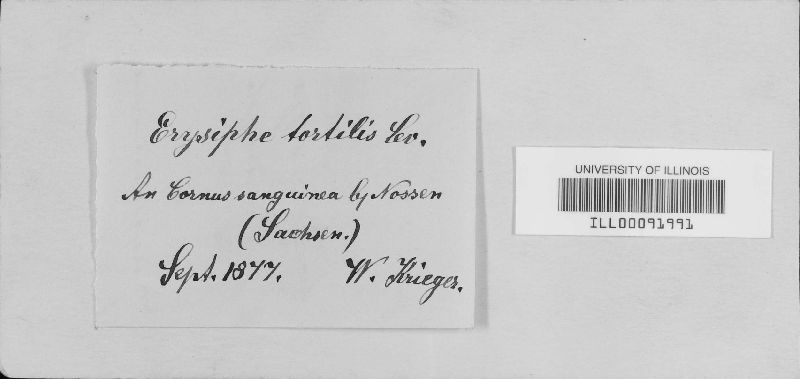 Erysiphe tortilis Lev.
An Cornus sanguinea bj Nossen
(Sachsen.)
Sept. 1877. W. Krieger.
UNIVERSITY OF ILLINOIS
ILL00091991